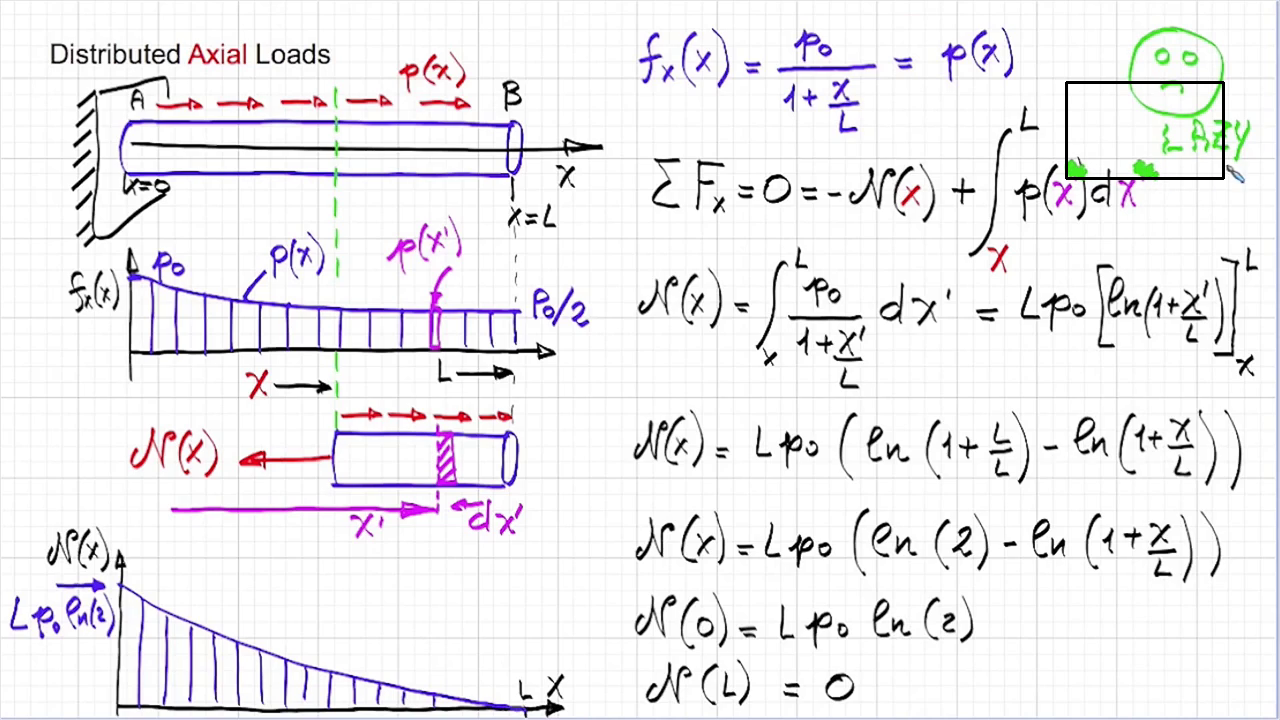 Distributed Axial Loads
p(x)
A
B
x=0
x
x=L
fₓ(x)
p₀
p(x)
p(x')
p₀/2
x
L
N(x)
x'
dx'
N(x)
L p₀ ln(2)
L
x
fₓ(x) = p₀/(1+x/L) = p(x)
LAZY
∑Fₓ = 0 = -N(x) + ∫ₓᴸ p(x)dx
N(x) = ∫ₓᴸ p₀/(1+x'/L) dx' = Lp₀[ln(1+x'/L)]ₓᴸ
N(x) = Lp₀(ln(1+L/L) - ln(1+x/L))
N(x) = Lp₀(ln(2) - ln(1+x/L))
N(0) = Lp₀ ln(2)
N(L) = 0